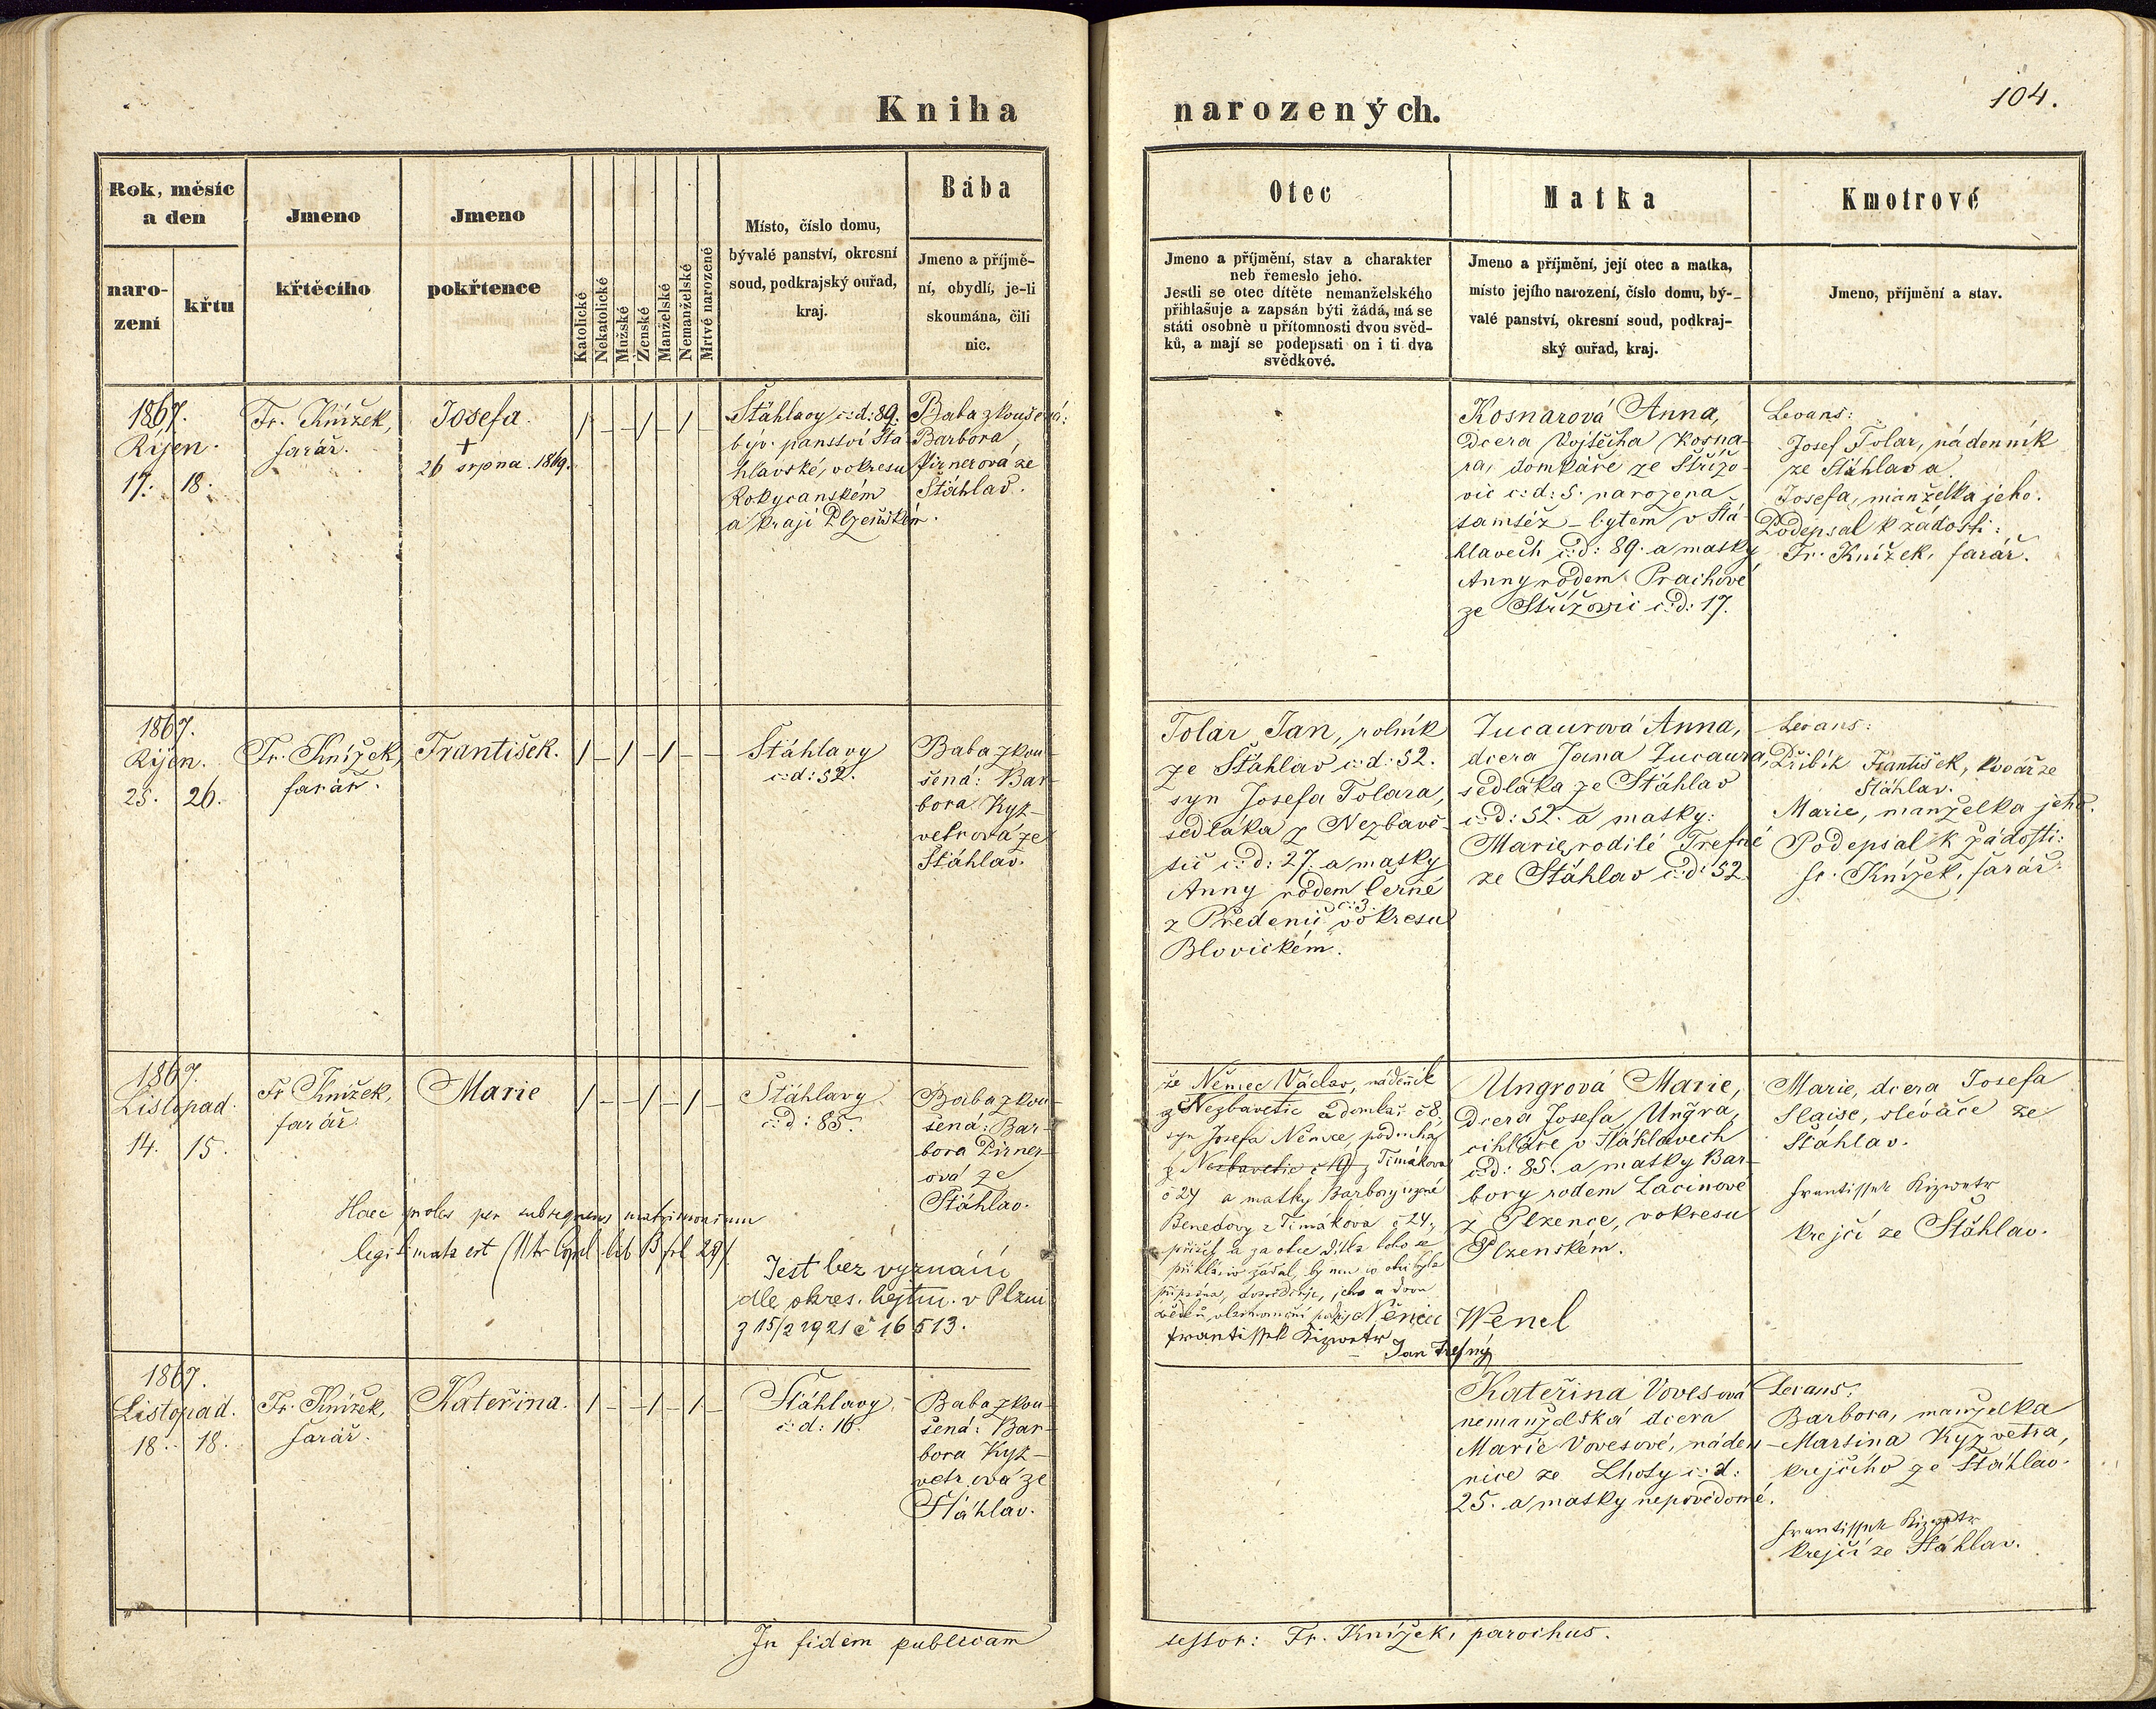 Kniha
narozených.
104.
Rok, měsíc
a den
naro-
zení
křtu
Jmeno
křtěcího
Jmeno
pokřtence
Katolické
Nekatolické
Mužské
Ženské
Manželské
Nemanželské
Mrtvé narozené
Místo, číslo domu,
bývalé panství, okresní
soud, podkrajský ouřad,
kraj.
Bába
Jmeno a příjmě-
ní, obydlí, je-li
skoumána, čili
nic.
Otec
Jmeno a příjmění, stav a charakter
neb řemeslo jeho.
Jestli se otec dítěte nemanželského
přihlašuje a zapsán býti žádá, má se
státi osobně u přítomnosti dvou svěd-
ků, a mají se podepsati on i ti dva
svědkové.
Matka
Jmeno a příjmění, její otec a matka,
místo jejího narození, číslo domu, bý-
valé panství, okresní soud, podkraj-
ský ouřad, kraj.
Kmotrové
Jmeno, příjmění a stav.
1867.
Říjen.
17. 18.
Fr. Knížek,
farář.
Josefa.
+
26 srpna. 1869.
/ – – / – / –
Štáhlavy č:d: 89.
býv. panství Štá
hlavské, v okresu
Rokycanském
a kraji Plzeňském.
Baba zkoušená:
Barbora
Pirnerová ze
Štáhlav.
Kosnarová Anna,
dcera Vojtěcha Kosna-
ra, domkáře ze Střížo-
vic č:d: 5. narozena
tamtéž – bytem v Štá-
hlavech č:d: 89. a matky
Anny rodem Prachové
ze Střížovic č:d: 17.
Levans:
Josef Tolar, nádenník
ze Štáhlav a
Josefa, manželka jeho.
Podepsal k žádosti:
Fr. Knížek, farář.
1867.
Říjen.
25. 26.
Fr. Knížek,
farář.
František.
/ – / – / – –
Štáhlavy
č:d: 52.
Baba zkou-
šená: Bar-
bora Kyz-
vetrová ze
Štáhlav.
Tolar Jan, rolník
ze Štáhlav č:d: 52.
syn Josefa Tolara,
sedláka z Nezbavě-
tic č:d: 27. a matky
Anny rodem Černé
z Předenic č: 3. v okresu
Blovickém.
Zucaurová Anna,
dcera Jana Zucaura,
sedláka ze Štáhlav
č:d: 52. a matky:
Marie, rodilé Trefné
ze Štáhlav č:d: 52.
Levans:
Přibík František, kovář ze
Štáhlav.
Marie, manželka jeho.
Podepsal k žádosti:
Fr. Knížek, farář.
1867.
Listopad.
14. 15.
Fr. Knížek,
farář.
Marie
/ – – / – / –
Štáhlavy
č:d: 85.
Baba zkou-
šená: Bar-
bora Pirner-
ová ze
Štáhlav.
Haec proles per subsequens matrimonium
legitimata est
Jest bez vyznání
dle okres. hejtm. v Plzni
z 15/2 1921 č 16513.
že Němec Václav, nádeník
z Nezbavetic a domkař č 8,
syn Josefa Němce, podruha
z Nezbavetic č 19 z Timákova
č 24 a matky Barbory rozené
Benedovy z Timákova č 24,
přišel a za otce dítka toho se
Němec Wenel
Frantissek Kizwetr
Jan Trefný
Ungrová Marie,
dcera Josefa Ungra,
cihláře v Štáhlavech
č:d: 85. a matky Bar-
bory rodem Lacinové
z Plzence, v okresu
Plzenském.
Marie, dcera Josefa
Slaise, slévače ze
Štáhlav.
Frantissek Kizwetr
krejčí ze Štáhlav.
1867.
Listopad.
18. 18.
Fr. Knížek,
farář.
Kateřina.
/ – – / – / –
Štáhlavy
č:d: 16.
Baba zkou-
šená: Bar-
bora Kyz-
vetrová ze
Štáhlav.
Kateřina Vovesová
nemanželská dcera
Marie Vovesové, náden-
nice ze Lhoty č:d:
25. a matky nepovědomé.
Levans:
Barbora, manželka
Martina Kyzvetra,
krejčího ze Štáhlav.
Frantissek Kizwetr
krejčí ze Štáhlav.
In fidem publicam
testor: Fr. Knížek, parochus.